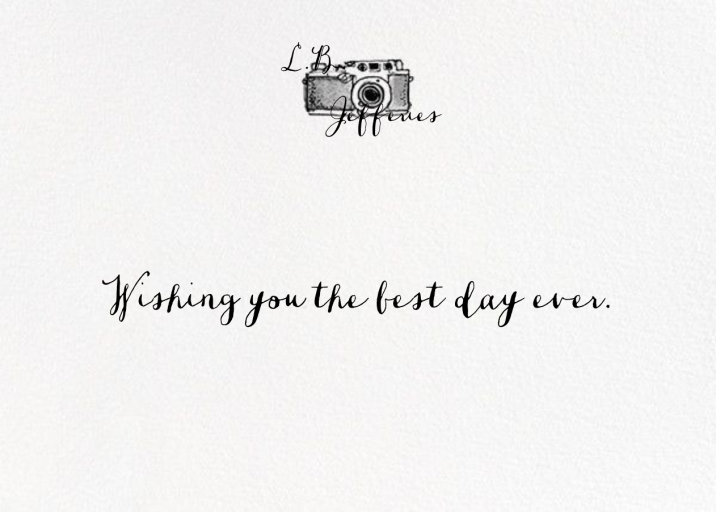 L.B.
Jefferies
Wishing you the best day ever.